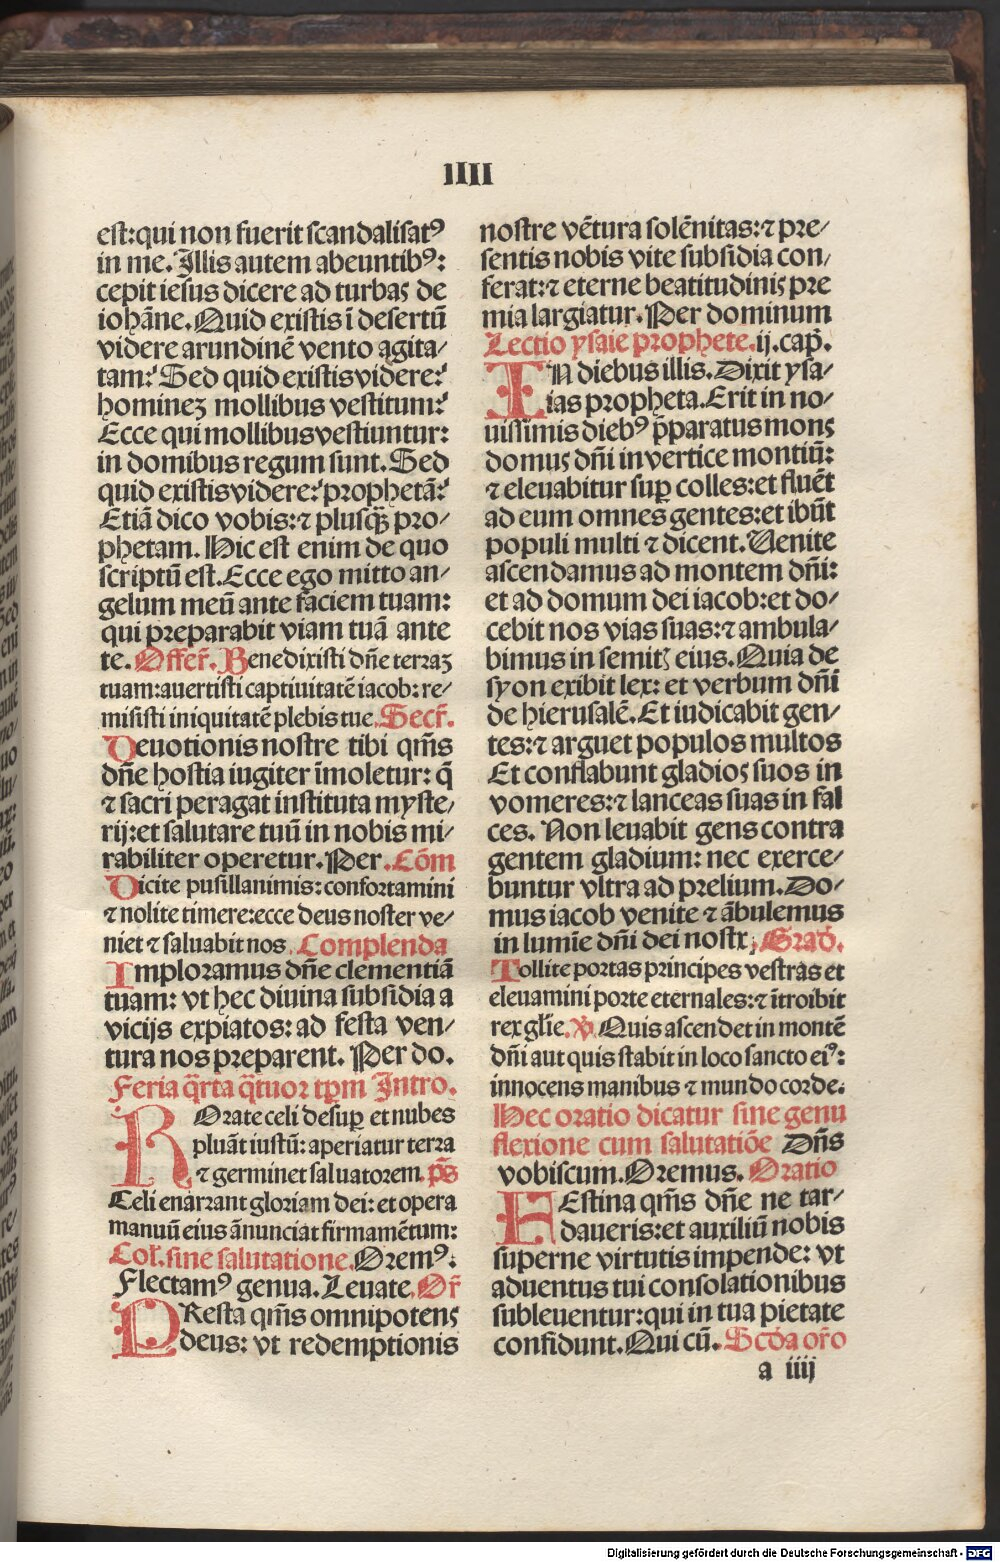 IIII
est:qui non fuerit scandalisatꝰ
in me. Illis autem abeuntibꝰ:
cepit iesus dicere ad turbas de
iohāne. Quid existis ī desertū
videre arundinē vento agita⸗
tam? Sed quid existis videre?
hominez mollibus vestitum?
Ecce qui mollibus vestiuntur:
in domibus regum sunt. Sed
quid existis videre? prophetā?
Etiā dico vobis: ⁊ plusq̄ꝫ pro⸗
phetam. Hic est enim de quo
scriptū est. Ecce ego mitto an⸗
gelum meū ante faciem tuam:
qui preparabit viam tuā ante
te. Offer̄. Benedixisti dn̄e terraz
tuam: auertisti captiuitatē iacob: re⸗
misisti iniquitatē plebis tue. Secr̄.
Deuotionis nostre tibi qm̄s
dn̄e hostia iugiter īmoletur: q̄
⁊ sacri peragat instituta myste⸗
rij: et salutare tuū in nobis mi⸗
rabiliter operetur. Per. Cōm
Dicite pusillanimis: confortamini
⁊ nolite timere: ecce deus noster ve⸗
niet ⁊ saluabit nos. Complenda
Imploramus dn̄e clementiā
tuam: vt hec diuina subsidia a
vicijs expiatos: ad festa ven⸗
tura nos preparent. Per do.
Feria q̄rta q̄tuor tp̄m Intro.
ROrate celi desuꝑ et nubes
pluāt iustū: aperiatur terra
⁊ germinet saluatorem. p̄s
Celi enarrant gloriam dei: et opera
manuū eius ānunciat firmamētum:
Col̄. sine salutatione. Oremꝰ.
Flectamꝰ genua. Leuate. Or̄
PResta qm̄s omnipotens
deus: vt redemptionis
nostre vētura solēnitas: ⁊ pre⸗
sentis nobis vite subsidia con⸗
ferat: ⁊ eterne beatitudinis pre
mia largiatur. Per dominum
Lectio ysaie prophete. ij. cap̄.
IN diebus illis. Dixit ysa⸗
ias propheta. Erit in no⸗
uissimis diebꝰ p̄paratus mons
domus dn̄i in vertice montiū:
⁊ eleuabitur suꝑ colles: et fluēt
ad eum omnes gentes: et ibūt
populi multi ⁊ dicent. Uenite
ascendamus ad montem dn̄i:
et ad domum dei iacob: et do⸗
cebit nos vias suas: ⁊ ambula⸗
bimus in semitꝭ eius. Quia de
syon exibit lex: et verbum dn̄i
de hierusalē. Et iudicabit gen⸗
tes: ⁊ arguet populos multos
Et conflabunt gladios suos in
vomeres: ⁊ lanceas suas in fal
ces. Non leuabit gens contra
gentem gladium: nec exerce⸗
buntur vltra ad prelium. Do⸗
mus iacob venite ⁊ ābulemus
in lumīe dn̄i dei nostꝝ. Grad̄.
Tollite portas principes vestras et
eleuamini porte eternales: ⁊ ītroibit
rex glīe. ℣. Quis ascendet in montē
dn̄i aut quis stabit in loco sancto eiꝰ:
innocens manibus ⁊ mundo corde.
Hec oratio dicatur sine genu
flexione cum salutatiōe Dn̄s
vobiscum. Oremus. Oratio
FEstina qm̄s dn̄e ne tar⸗
daueris: et auxiliū nobis
superne virtutis impende: vt
aduentus tui consolationibus
subleuentur: qui in tua pietate
confidunt. Qui cū. Scd̄a or̄o
a iiij
Digitalisierung gefördert durch die Deutsche Forschungsgemeinschaft - DFG